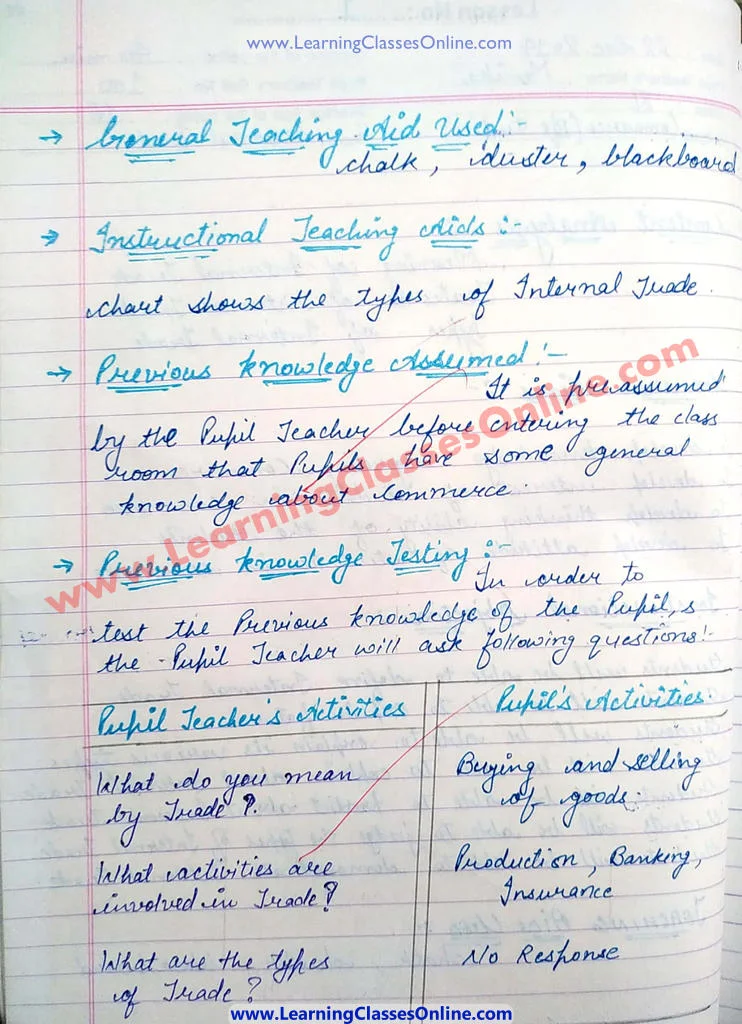 www.LearningClassesOnline.com
→ General Teaching Aid Used:-
chalk, duster, blackboard
→ Instructional Teaching Aids:-
chart shows the types of Internal Trade.
→ Previous knowledge Assumed:-
It is preassumed
by the Pupil Teacher before entering the class
room that Pupils have some general
knowledge about Commerce.
→ Previous knowledge Testing:-
In order to
test the Previous knowledge of the Pupil,s
the Pupil Teacher will ask following questions:-
www.LearningClassesOnline.com
Pupil Teacher's Activities
Pupil's Activities.
What do you mean
by Trade?
Buying and selling
of goods.
What activities are
involved in Trade?
Production, Banking,
Insurance
What are the types
of Trade?
No Response
www.LearningClassesOnline.com